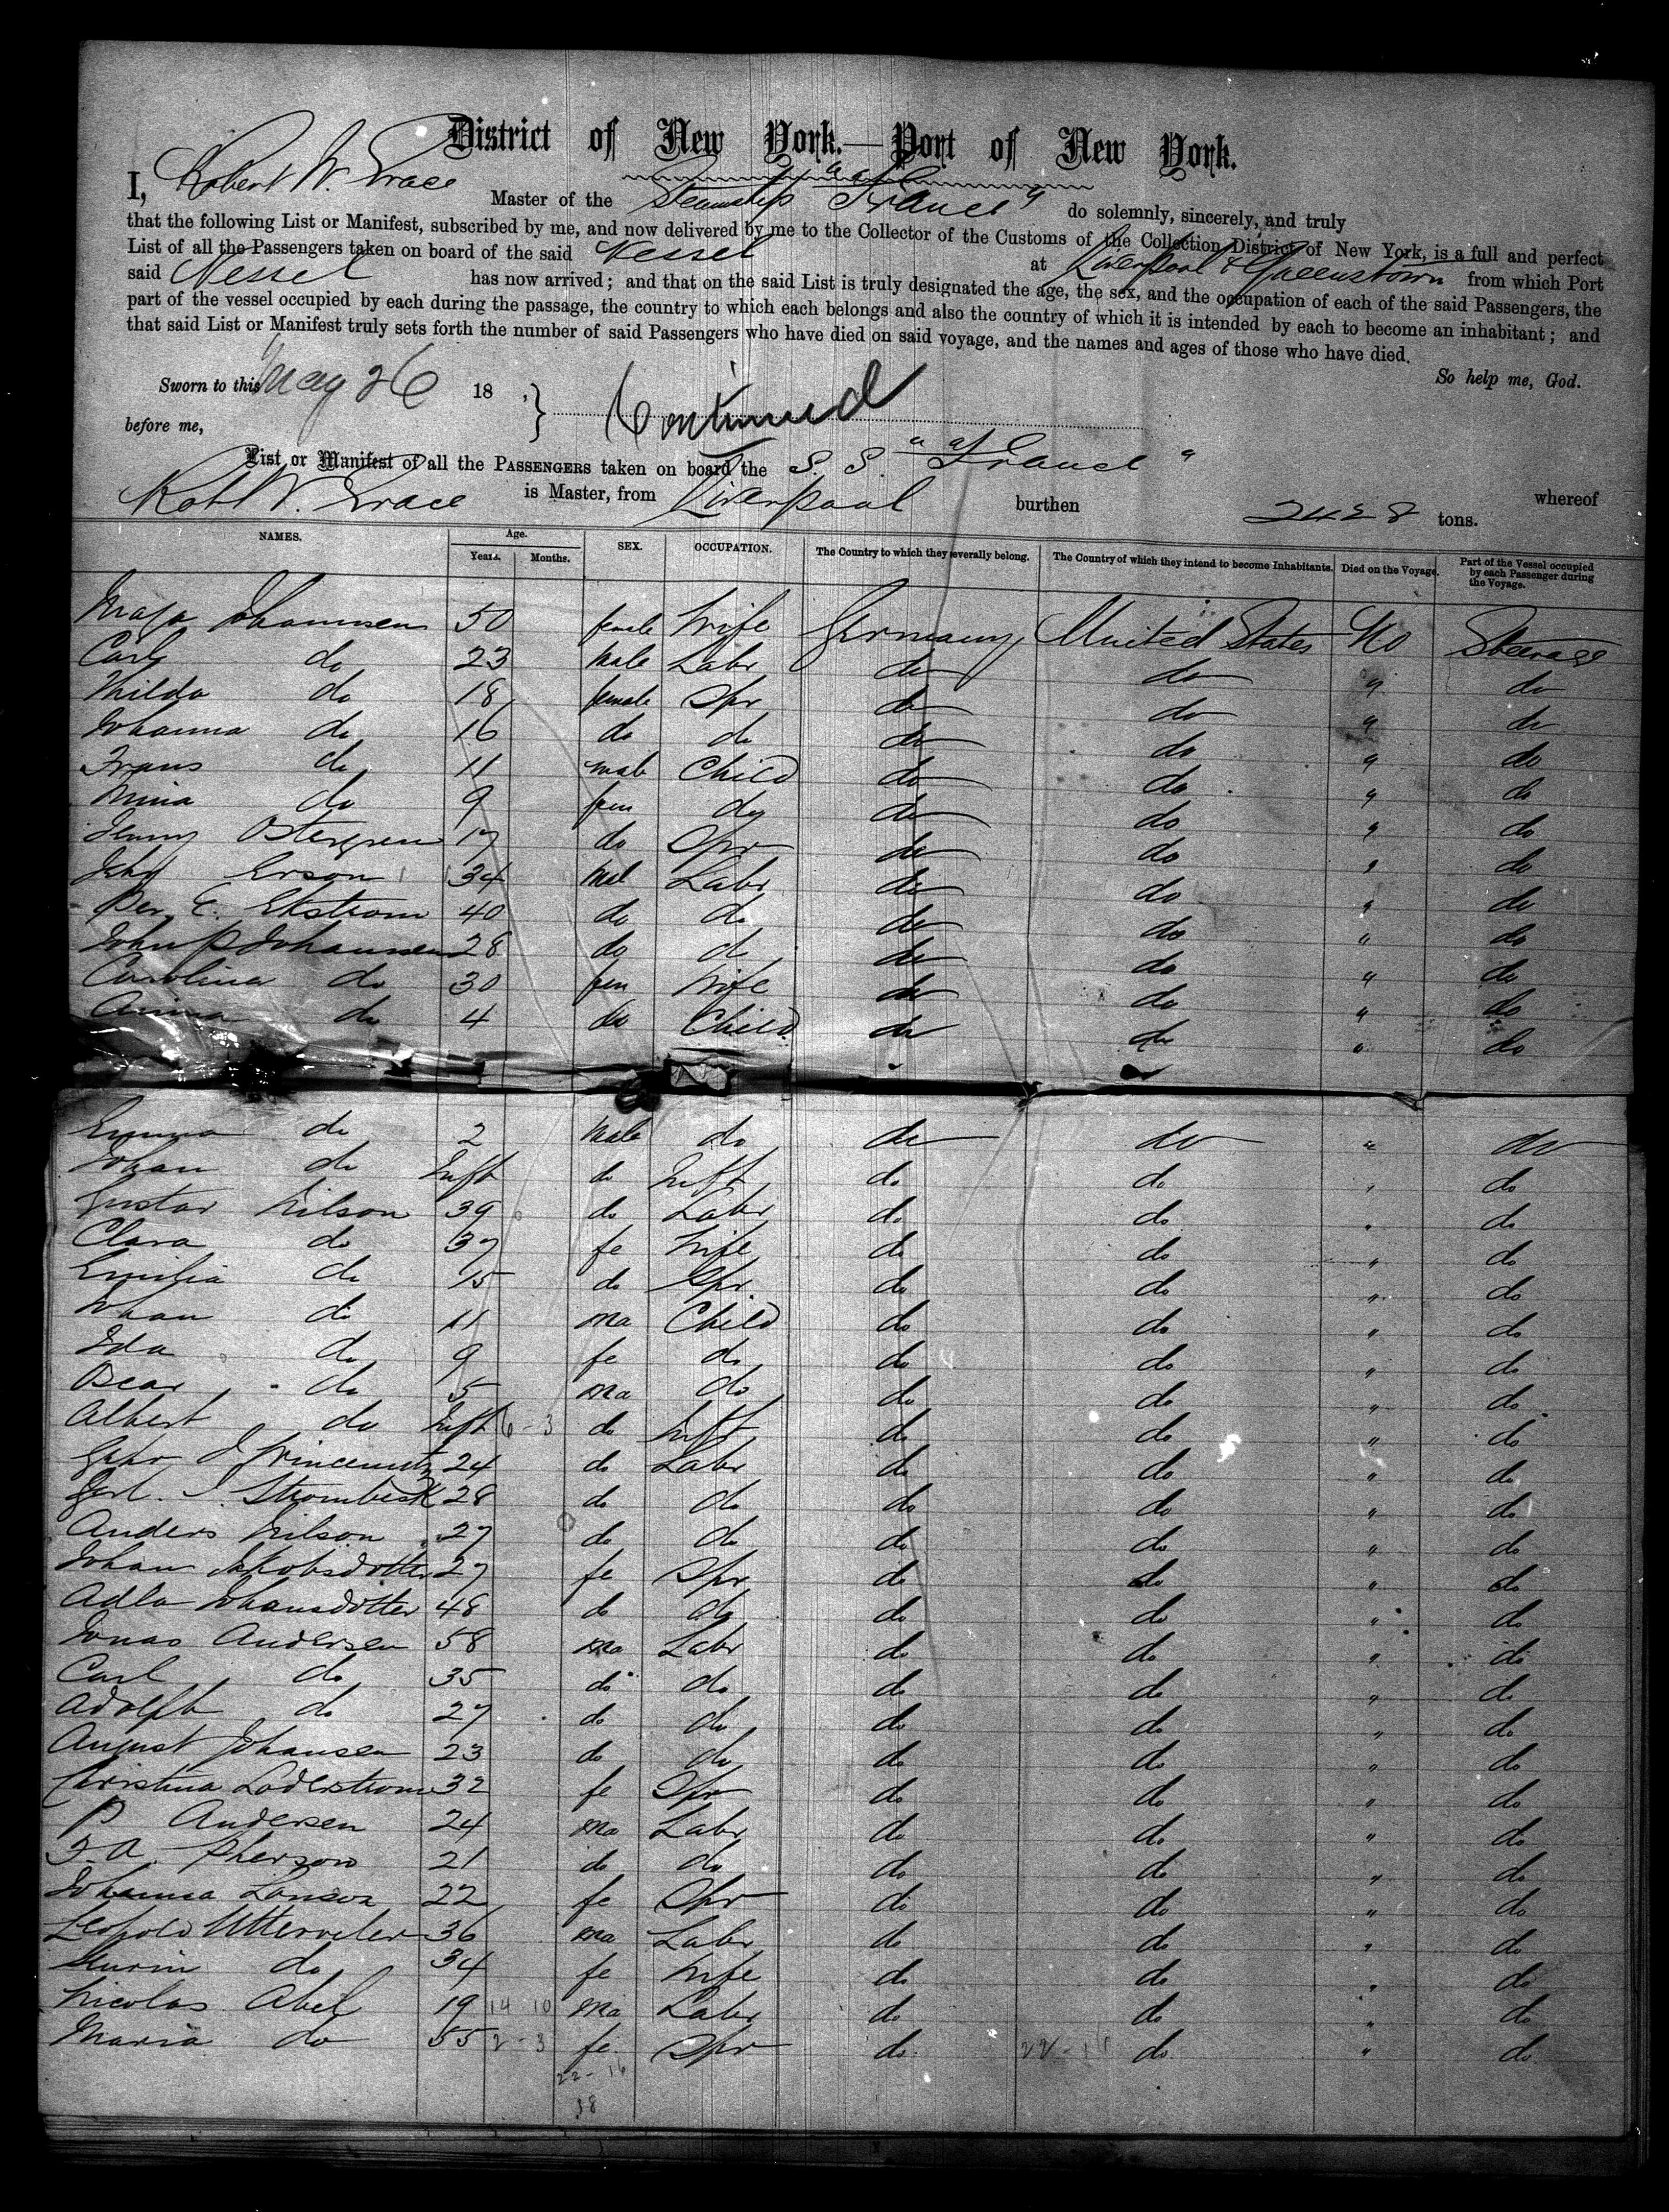 District of New York.—Port of New York.
I, Robert W. Grace Master of the Steamship "France" do solemnly, sincerely, and truly
that the following List or Manifest, subscribed by me, and now delivered by me to the Collector of the Customs of the Collection District of New York, is a full and perfect
List of all the Passengers taken on board of the said Vessel at Liverpool & Queenstown from which Port
said Vessel has now arrived; and that on the said List is truly designated the age, the sex, and the occupation of each of the said Passengers, the
part of the vessel occupied by each during the passage, the country to which each belongs and also the country of which it is intended by each to become an inhabitant; and
that said List or Manifest truly sets forth the number of said Passengers who have died on said voyage, and the names and ages of those who have died.
So help me, God.
Sworn to this May 26 18 ,
before me,
Continued
List or Manifest of all the PASSENGERS taken on board the S. S. "France" whereof
Robt W. Grace is Master, from Liverpool burthen 2428 tons.
NAMES. Age. Years. Months. SEX. OCCUPATION. The Country to which they severally belong. The Country of which they intend to become Inhabitants. Died on the Voyage. Part of the Vessel occupied by each Passenger during the Voyage.
Maja Johannsen 50 female Wife Germany United States No Steerage
Carl do 23 Male Labr do do " do
Hilda do 18 female Spr do do " do
Johanna do 16 do do do do " do
Frans do 11 male Child do do " do
Mina do 9 fem do do do " do
Jenny Ostergren 17 do Spr do do " do
John Erson 34 Mal Labr do do " do
Per E. Ekstrom 40 do do do do " do
John P Johannsen 28 do do do do " do
Carolina do 30 fem Wife do do " do
Anna do 4 do Child do do " do
Emma do 2 Male do do do " do
Johan do Inft do Inft do do " do
Gustav Nilson 39 do Labr do do " do
Clara do 37 fe Wife do do " do
Emilia do 15 do Spr do do " do
Johan do 11 ma Child do do " do
Ida do 9 fe do do do " do
Oscar do 5 ma do do do " do
Albert do Inft 6-3 do Inft do do " do
24 do Labr do do " do
J. Strombeck 28 do do do do " do
Anders Nilson 27 do do do do " do
Johan Jakobsdotter 27 fe Spr do do " do
Adla Johansdotter 48 do do do do " do
Jonas Andersen 58 ma Labr do do " do
Carl do 35 do do do do " do
Adolph do 27 do do do do " do
August Johansen 23 do do do do " do
Christina Soderstrom 32 fe Spr do do " do
P Andersen 24 ma Labr do do " do
F. A. Pherson 21 do do do do " do
Johanna Lanson 22 fe Spr do do " do
Leopold 36 ma Labr do do " do
do 34 fe Wife do do " do
Nicolas Abel 19 14 10 ma Labr do do " do
Maria do 55 2-3 fe Spr do 22-16 do " do
22-16
38